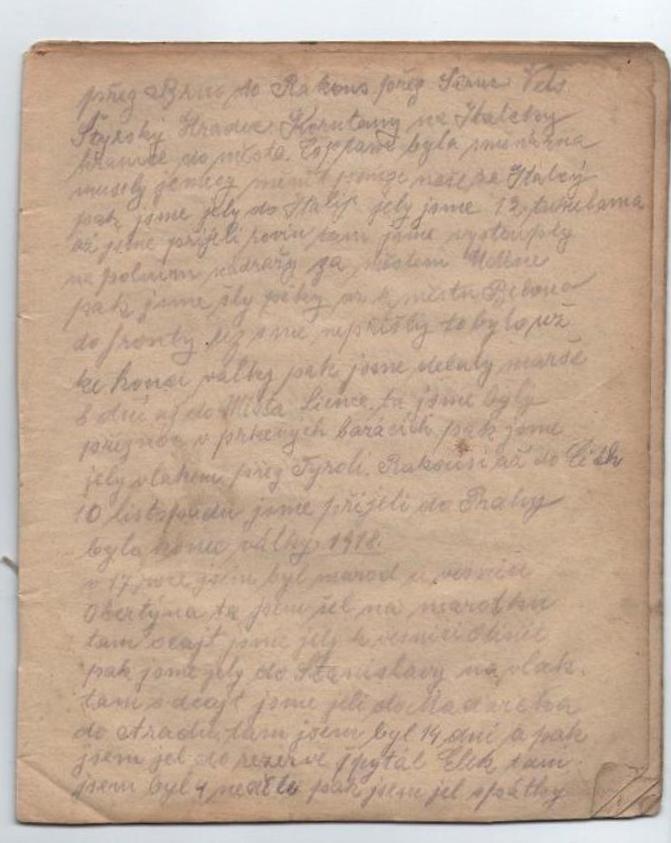 přeg Brno do Rakous přeg Linec Vels
Štyrský Hradec Korutany na Italcky
hranice do města. byla
musely
pak jsme jely do Italij jely jsme 12 tunelama
až jsme přijeli rovin tam jsme vystouply
na polnim nádražy za městem Udine
pak jsme šly pěky až k městu Beluno
do fronty už sme nepřišly to bylo už
ke konci války pak jsme delaly marše
8 dní až do Města Lience. ta jsme byly
přeznoc v prkených barácich pak jsme
jely vlakem přeg Tyroli. Rakousi až do Čech
10 listopadu jsme přijeli do Prahy
bylo konec války 1918.
v 17 roce jsem byl marod u vesnici
Obertýna ta jsem šel na marotku
tam ocajť jsme jely k vesnici
pak jsme jely do Stanislavy na vlak.
tam odcajť jsme jeli do Maďarska
do Aradu, tam jsem byl 14 dní a pak
jsem jel do rezerve špytál Elek tam
jsem byl 4 neděle pak jsem jel spátky